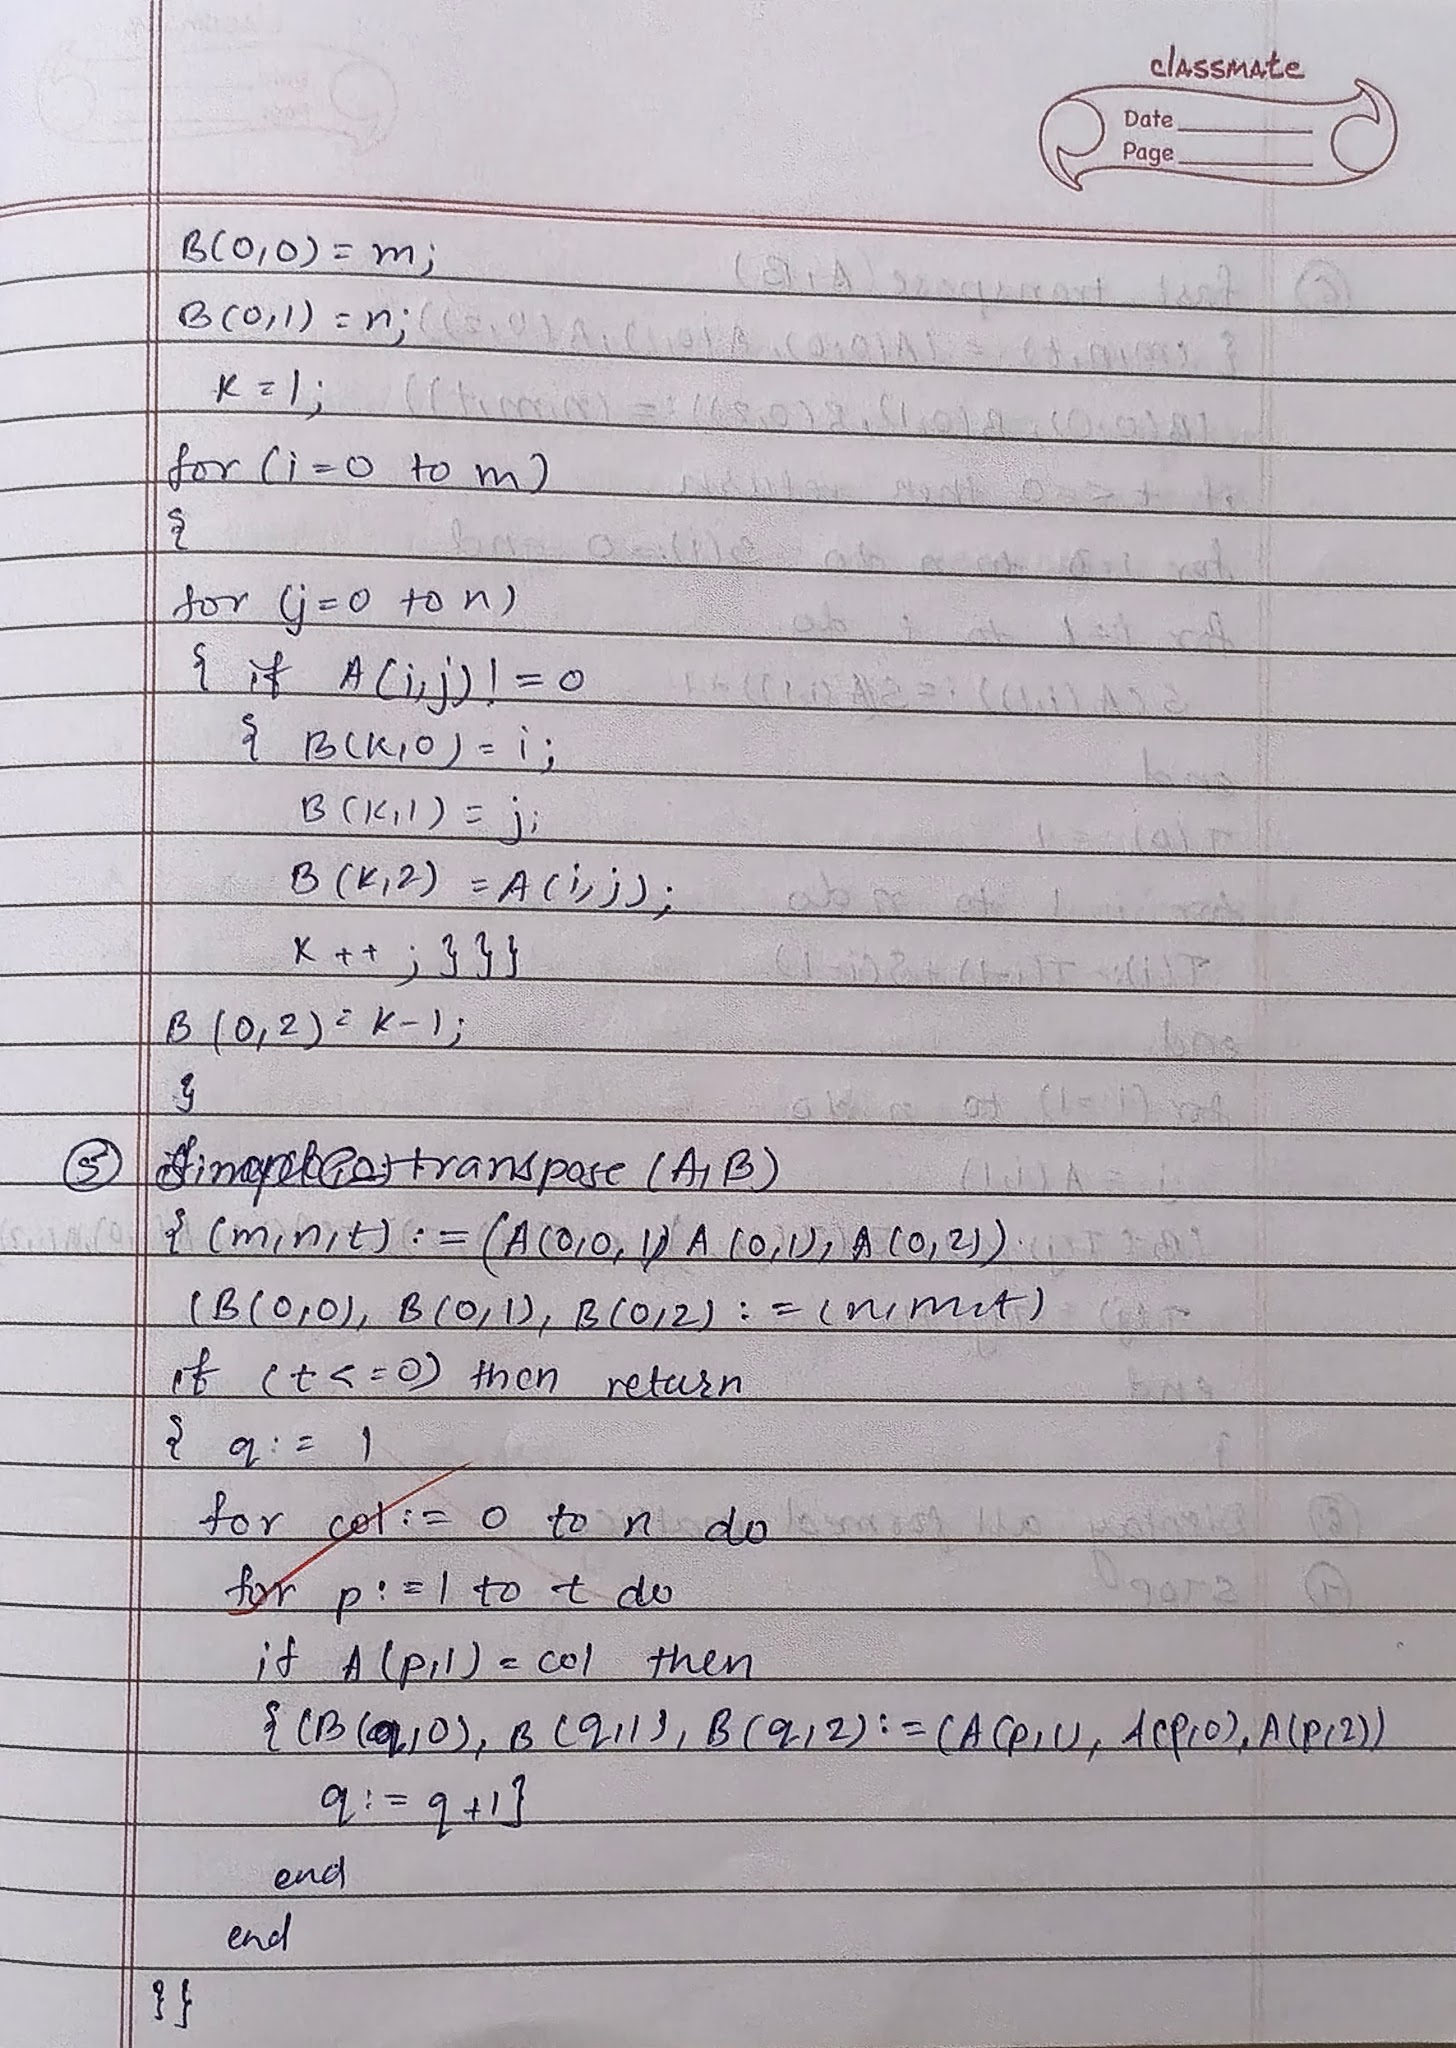 classmate
Date
Page
B(0,0) = m;
B(0,1) = n;
K = 1;
for (i=0 to m)
{
for (j=0 to n)
{ if A(i,j) != 0
{ B(K,0) = i;
B(K,1) = j;
B(K,2) = A(i,j);
K++; }}}
B(0,2) = K-1;
}
⑤ transpose (A,B)
{ (m,n,t) := (A(0,0, 1) A(0,1), A(0,2))
(B(0,0), B(0,1), B(0,2) := (n,m,t)
if (t<=0) then return
{ q := 1
for col := 0 to n do
for p := 1 to t do
if A(p,1) = col then
{ (B(q,0), B(q,1), B(q,2) := (A(p,1), A(p,0), A(p,2))
q := q+1}
end
end
}}